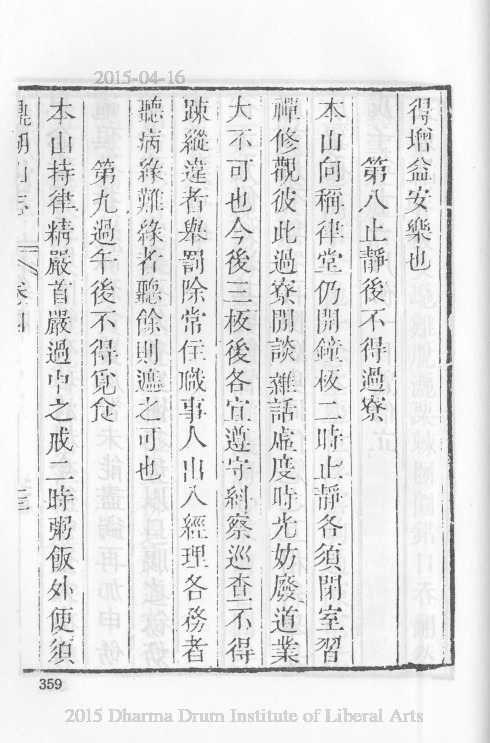 2015-04-16
得增益安樂也
第八止靜後不得過寮
本山向稱律堂仍開鐘板二時止靜各須閉室習
禪修觀彼此過寮閒談雜話虛度時光妨廢道業
大不可也今後三板後各宜遵守糾察巡查不得
踈縱違者舉罰除常住職事人出入經理各務者
聽病緣難緣者聽餘則遮之可也
第九過午後不得覓食
本山持律精嚴首嚴過中之戒二時粥飯外便須
鼎湖山志 卷四 三
359
2015 Dharma Drum Institute of Liberal Arts